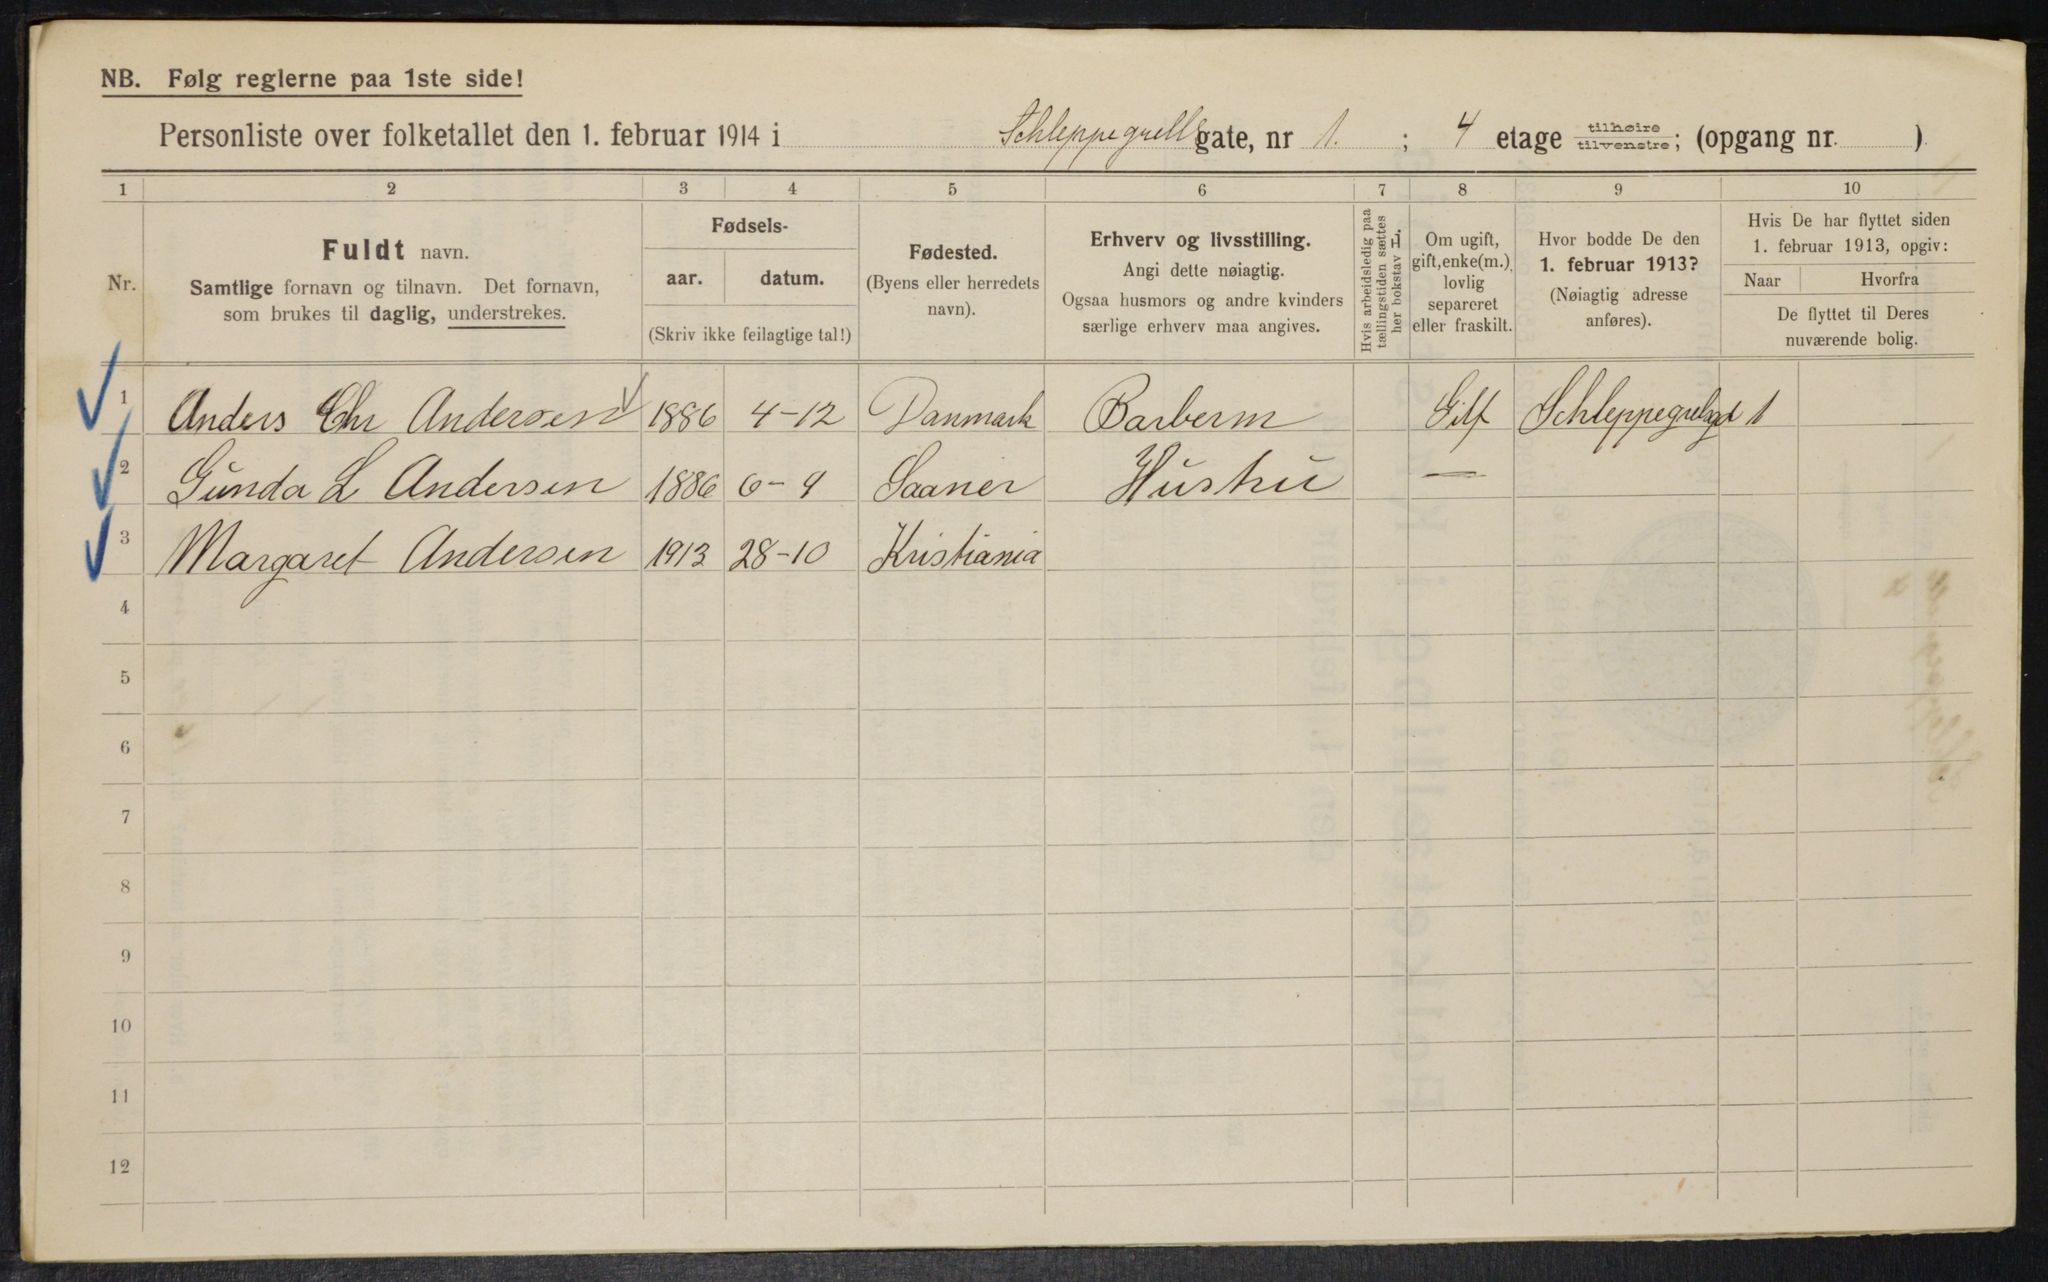 NB. Følg reglerne paa 1ste side!
Personliste over folketallet den 1. februar 1914 i Schleppegrells gate, nr 1. ; 4 etage tilhøire tilvenstre; (opgang nr. )
1 2 3 4 5 6 7 8 9 10
Nr.
Fuldt navn.
Samtlige fornavn og tilnavn. Det fornavn,
som brukes til daglig, understrekes.
Fødsels-
aar. datum.
(Skriv ikke feilagtige tal!)
Fødested.
(Byens eller herredets
navn).
Erhverv og livsstilling.
Angi dette nøiagtig.
Ogsaa husmors og andre kvinders
særlige erhverv maa angives.
Hvis arbeidsledig paa
tællingstiden sættes
her bokstav L.
Om ugift,
gift, enke(m.),
lovlig
separeret
eller fraskilt.
Hvor bodde De den
1. februar 1913?
(Nøiagtig adresse
anføres).
Hvis De har flyttet siden
1. februar 1913, opgiv:
Naar Hvorfra
De flyttet til Deres
nuværende bolig.
1 Anders Chr Andersen 1886 4-12 Danmark Barberm Gift Schleppegrelsgt 1
2 Gunda L Andersen 1886 6-9 Saaner Hustru —
3 Margaret Andersen 1913 28-10 Kristiania
4
5
6
7
8
9
10
11
12